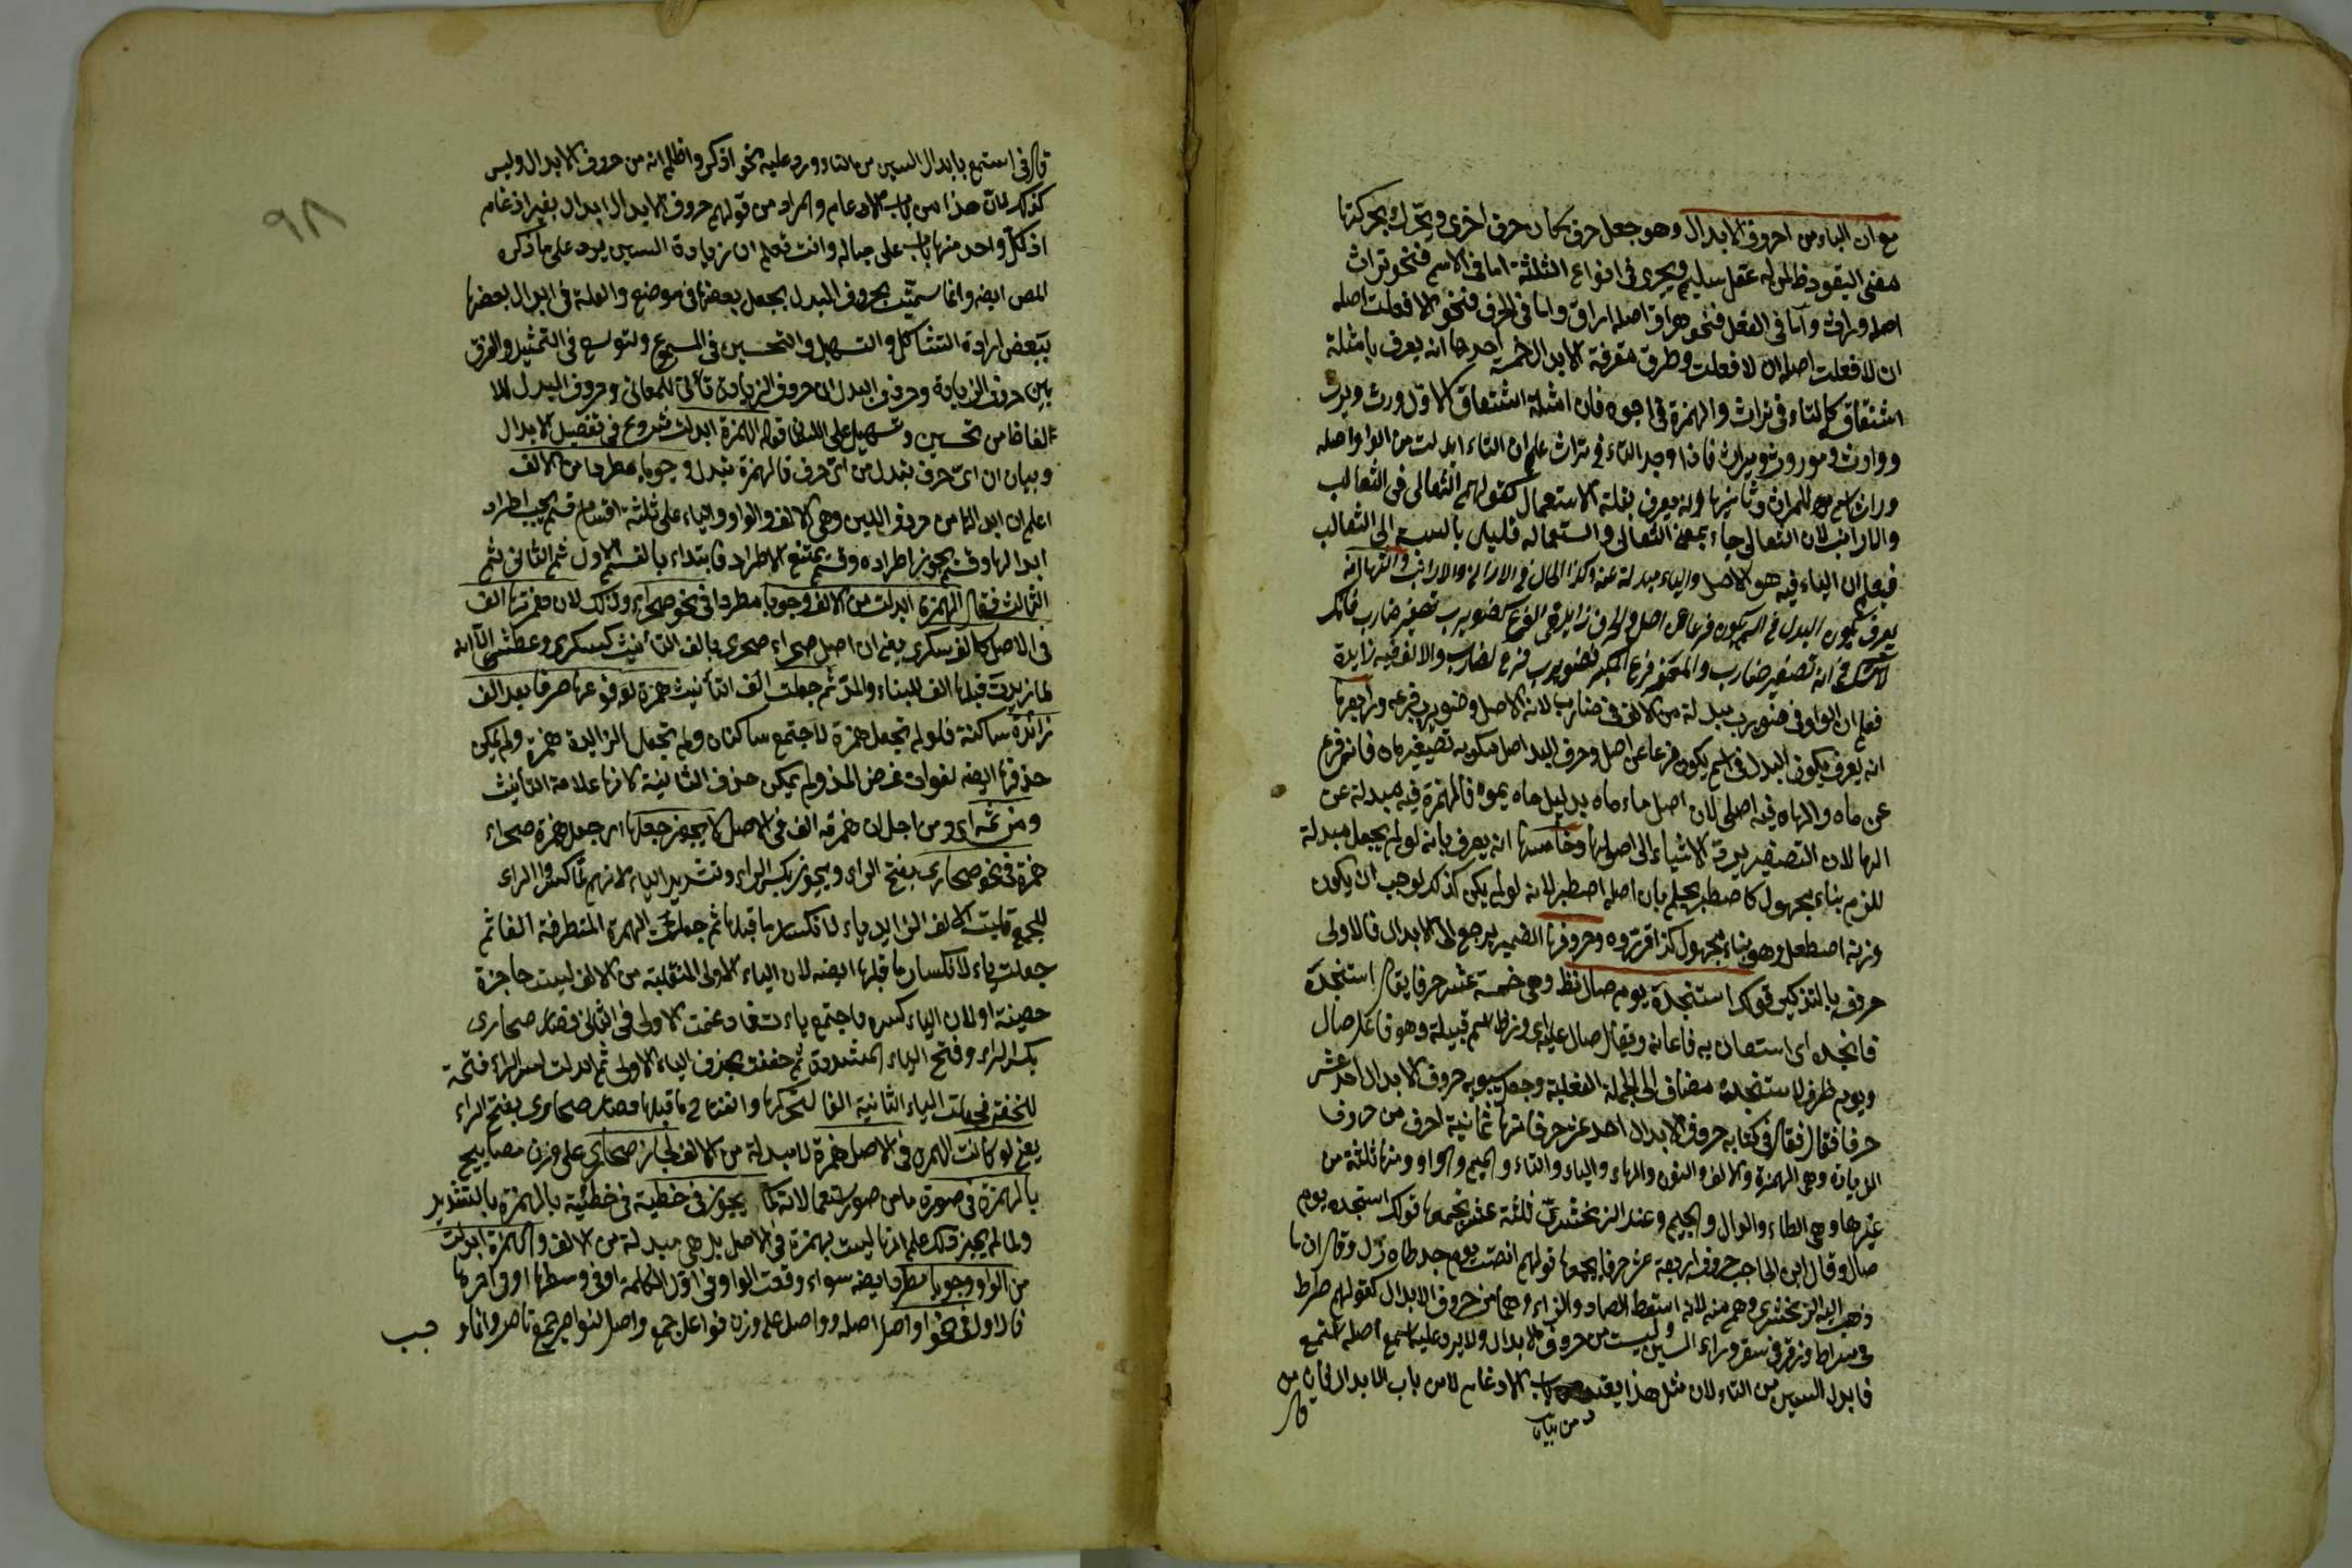 مع ان الباء من احروف الابدال وهو جعل حرف مكان حرف اخرى ويحرك بحركتها
عقل سليم ويجرى فى انواع الثلثة اما فى الاسم فنحو تراث
اصله وراث واما فى الفعل فنحو هراق اصله اراق واما فى الحرف فنحو الا فعلت اصله
ان لا فعلت اصله ان لا فعلت وطرق معرفة الابدال خمسة احدها انه يعرف بامثلة
اشتقاق كالتاء فى تراث والهمزة فى اجوه فان امثلة اشتقاق الاول ورث ويرث
ووارث وموروث وميراث فاذا وجد التاء فى تراث علم ان التاء ابدلت من الواو اصله
وراث وثانيها انه يعرف بقلة الاستعمال كقولهم الثعالى فى الثعالب
والارانب لان الثعالى جاء بمعنى الثعالب واستعماله قليل بالنسبة الى الثعالب
فيعلم ان الباء فيه هو الاصل والياء مبدلة عنه وكذا الحال فى الارانى والارانب وثالثها انه
يعرف بكون البدل فى اسم يكون فرعا عن اصل والحرف زايد فى الفرع كضويرب تصغير ضارب فانك
لا تشك فى انه تصغير ضارب والمصغر فرع المكبر فضويرب فرع لضارب والالف فيه زايدة
فعلم ان الواو فى ضويرب مبدلة من الالف فى ضارب لانه الاصل وضويرب فرعه ورابعها
انه يعرف بكون البدل فى اسم يكون فرعا عن اصل وحرف البدل اصل كمويه تصغير ماء فانه فرع
عن ماه والهاء فيه اصلى لان اصل ماء ماه بدليل ماه يموه فالهمزة فيه مبدلة عن
الها لان التصغير يرد الاشياء الى اصولها وخامسها انه يعرف بانه لو لم يجعل مبدلة
للزم بناء مجهول كاصطبر يعلم بان اصله اصتبر لانه لو لم يكن كذلك لوجب ان يكون
وزنه اصطعل وهو بناء مجهول كذا قرروه وحروفها الضمير يرجع الى الابدال فالاولى
حروفه بالتذكير قولك استنجده يوم صال زط وهى خمسة عشر حرفا يقال استنجده
فانجده اى استعان به فاعانه ويقال صال عليه اى وزط اسم قبيلة وهو فاعل صال
ويوم ظرف لاستنجده مضاف الى الجملة الفعلية وجعل سيبويه حروف الابدال احد عشر
حرفا فقال فى كتابه حروف الابدال احد عشر حرفا منها ثمانية احرف من حروف
الزيادة وهى الهمزة والالف والنون والهاء والياء والتاء والميم والواو ومنها ثلثة من
غيرها وهى الطاء والدال والجيم وعند الزمخشرى ثلثة عشر يجمعها قولك استنجده يوم
صال وقال ابن الحاجب حروفه اربعة عشر حرفا يجمعها قولهم انصت يوم جد طاه زل وقال ان ما
ذهب اليه الزمخشرى وهم منه لانه اسقط الصاد والزاء وهما من حروف الابدال كقولهم صراط
فى سراط وزقر فى سقر وزاد السين وليست من حروف الابدال ولا يرد عليه اسمع اصله استمع
فابدل السين من التاء لان مثل هذا يعتد من باب الادغام لا من باب الابدال
من بيان
قال
٩٨
قال فى استمع بابدال السين من التاء وورد عليه نحو اذكر واظلم انه من حروف الابدال وليس
كذلك لان هذا من باب الادغام والمراد من قولهم حروف الابدال ابدال بغير ادغام
اذ لكل واحد منهما باب على حياله وانت تعلم ان زيادة السين يرد على ما ذكره
المص ايضا وانما سميت بحروف البدل بجعل بعضها فى موضع والعلة فى ابدال بعضها
ببعض ارادة التشاكل والتسهيل والتحسين فى المسموع ولتوسع فى التمثيل والفرق
بين حروف الزيادة وحروف البدل ان حروف الزيادة تأتى للمعانى وحروف البدل
الفاظا من تحسين وتسهيل على اللسان قوله الهمزة ابدلت شروع فى تفصيل الابدال
وبيان ان اى حرف يبدل من اى حرف فالهمزة تبدل وجوبا مطردا من الالف
اعلم ان ابدالها من حروف اللين وهى الالف والواو والياء على ثلثة اقسام قسم يجب اطراد
ابدالها وقسم يجوز اطراده وقسم يمتنع الاطراد فابتداء بالقسم الاول ثم الثانى ثم
الثالث فقال الهمزة ابدلت من الالف وجوبا مطردا فى نحو صحراء وذلك لان همزتها الف
فى الاصل كالف سكرى يعنى ان اصل صحراء صحرى بالف التأنيث كسكرى وعطشى الا انه
لما زيدت قبلها الف للبناء والمد ثم جعلت الف التأنيث همزة لوقوعها طرفا بعد الف
زائدة ساكنة فلو لم تجعل همزة لاجتمع ساكنان ولم تجعل الزايدة همزة ولم يمكن
حذفها ايضا لفوات غرض المد ولم يمكن حذف الثانية لانها علامة التأنيث
ومن ثمه اى ومن اجل ان همزته الف فى الاصل لا يجوز جعلها اى جعل همزة صحراء
همزة فى نحو صحارى بفتح الراء ويجوز بكسر الراء وتشديد الياء لانهم لما كسروا الراء
للجمع قلبت الالف الزايد ياء لانكسار ما قبلها ثم جعلت الهمزة المتطرفة الفا ثم
جعلت ياء لانكسار ما قبلها ايضا لان الياء الاولى المنقلبة من الالف ليست حاجزة
حصينة اولان الياء كسره فاجتمع ياءت فادغمت الاولى فى الثانى فصار صحارى
بكسر الراء وفتح الياء المشددة ثم خففت بحذف الياء الاولى ثم ابدلت كسر الراء فتحة
للخفة فجعلت الياء الثانية الفا لتحركها وانفتاح ما قبلها فصار صحارى بفتح الراء
يعنى لو كانت الهمزة فى الاصل همزة لا مبدلة من الالف لجاز صحارى على وزن مصابيح
بالهمزة فى صورة ما من صور استعمالاته كما يجوز فى خطية فى خطيئة بالهمزة بالتقدير
ولما لم يجز ذلك علم انها ليست بهمزة فى الاصل بل هى مبدلة من الالف والهمزة ابدلت
من الواو وجوبا مطردا ايضا سواء وقعت الواو فى اول الكلمة او فى وسطها او فى اخرها
فالاول فى نحو اواصل اصله وواصل على وزن فواعل جمع واصل كنواصر جمع ناصر وانما